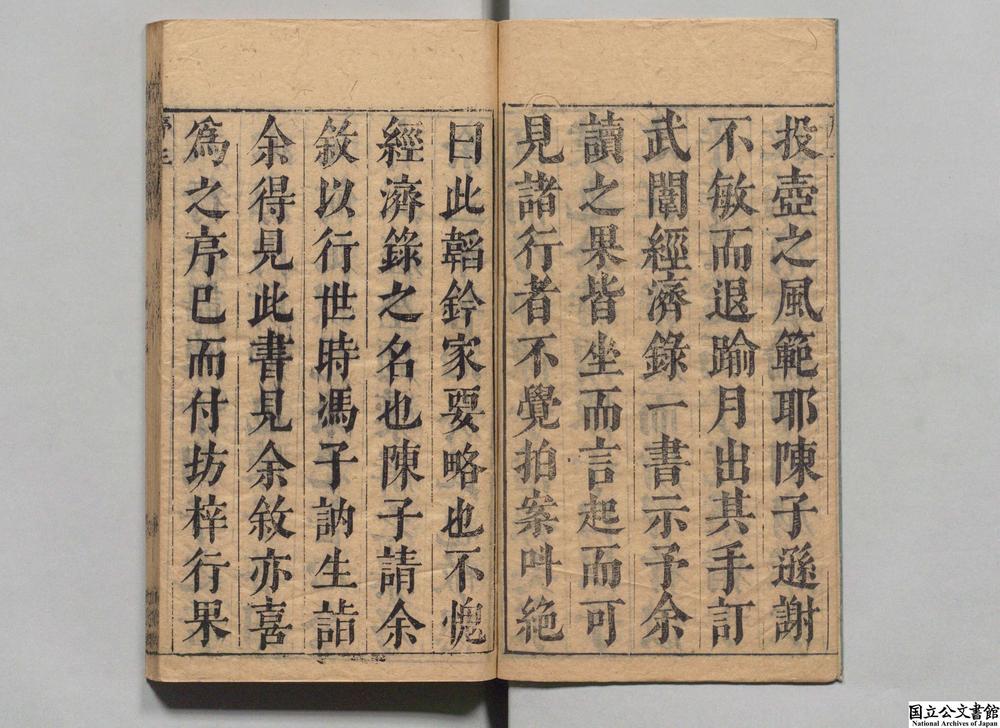 投壺之風範耶陳子遜謝
不敏而退踰月出其手訂
武闈經濟錄一書示予余
讀之果皆坐而言起而可
見諸行者不覺拍案叫絶
曰此韜鈐家要略也不愧
經濟錄之名也陳子請余
敘以行世時馮子訥生詣
余得見此書見余敘亦喜
爲之序已而付坊梓行果
序 三
国立公文書館
National Archives of Japan